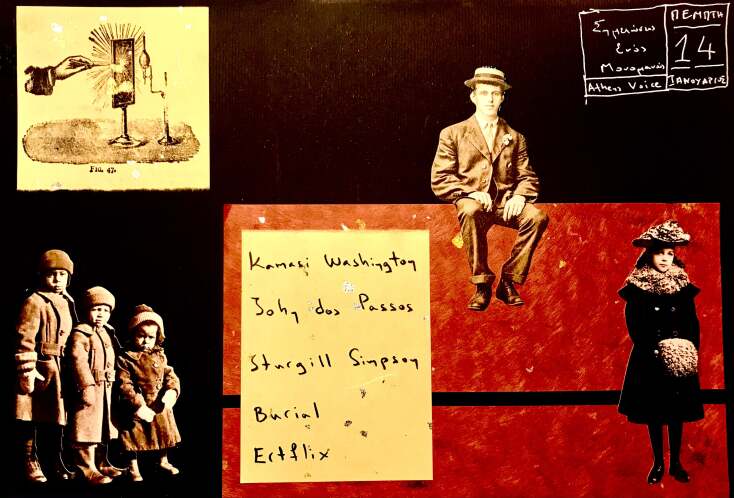 FIG. 47.
Σημειώσεις
Ενός
Μονομανούς
Athens Voice
ΠΕΜΠΤΗ
14
ΙΑΝΟΥΑΡΙΟΣ
Kamasi Washington
John dos Passos
Sturgill Simpson
Burial
Ertflix